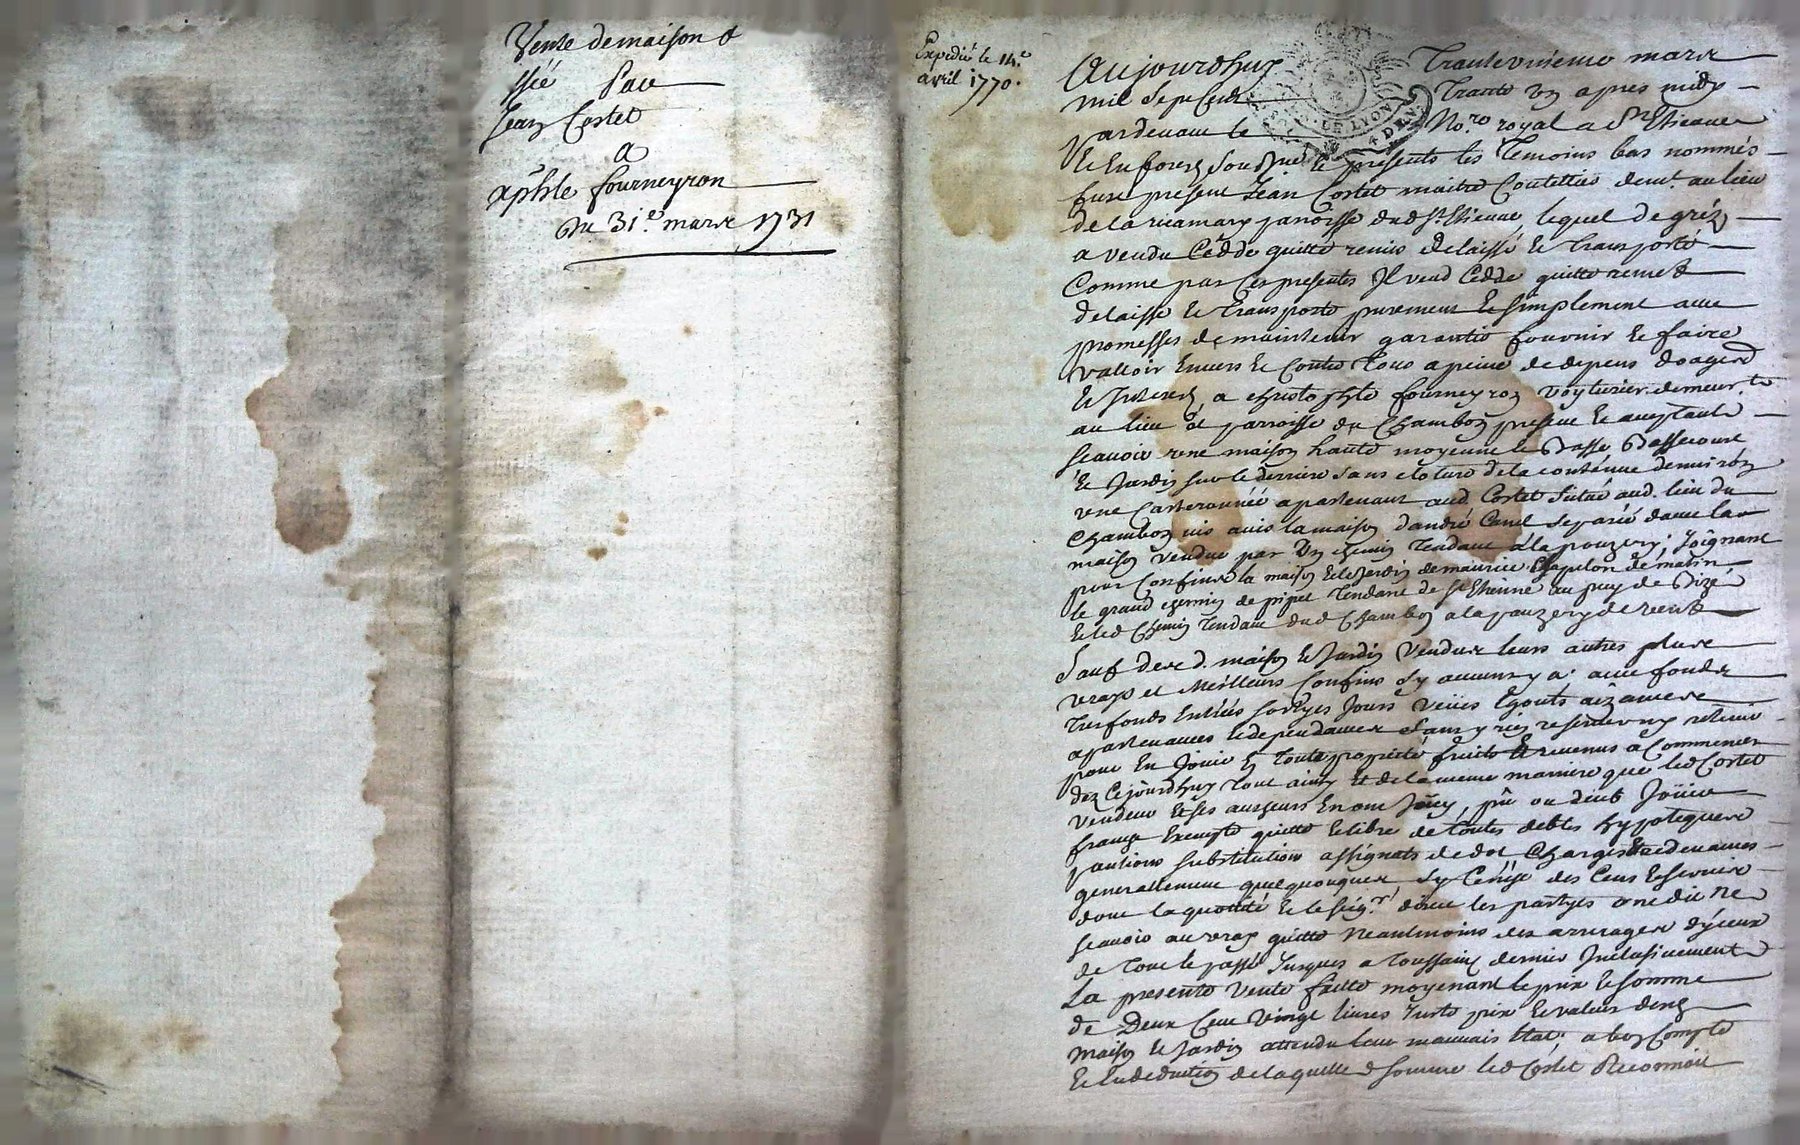 Vente de maison &
ssée Par
Jean Costet
a
aphle fourneyron
Du 31.e mars 1731
Expedié le 14.e
avril 1770.
Aujourdhuy Trante unieme mars
mil Sept Cent Trante un apres midy
pardevant le No.re royal a St Etienne
Et En forest Soub.né Et présents les Temoins bas nommés
fust présent Jean Costet maitre Coutellier demt. au lieu
de la ricamary paroisse dud St. Etienne lequel de gréz
a vendu Céddé quitté remis delaissé Et Transporté
Comme par Ces presentes Il vend Cédde quitte remet
delaisse Et Transporte purement Et simplement avec
promesses de maintenir garantir fournir Et faire
valloir Envers Et Contre Tous a peine de depens domages
Et Interest a christophle fourneyron voyturier demeur.t
au lieu et parroisse du Chambon présent Et acceptant
scavoir une maison haute moyenne Et Basse Bassecour
Et Jardin sur le derriere sans cloture de la contenue denviron
une Carteronnée apartenant aud. Costet Situé aud. lieu du
Chambon vis avis la maison dandré Canel Separé davec la
maison vendue par Un chemin Tendant a la pouzery; Joignant
pour Confins la maison Et le Jardin de maurice Chapelon de matin
le grand chemin de pipet Tendant de St Etienne au puy de Bize
Et led Chemin Tendant dud Chambon a la pouzery de vent
Sauf desd. maison Et Jardin Vendus leurs autres plus
vrays et Meilleurs Confins sy aucuns y a. avec fonds
Tresfonds Entrées sortyes Jours Veües Egouts aizances
apartenances Et dependances Sans y rien reserver ny retenir
pour En Jouir En Toute propriété fruits Et revenus a Commencer
dez Cejourdhuy Tout ainsy Et de la meme maniere que led Costet
vendeur Et ses autheurs En ont Jouy, pû ou deub Joüir
franq Exempte quitte Et libre de Toutes debtes hypoteques
pantions substitutions assignats de dot Charges
generallement quelquonques sy Ce n'est des Cens Et servis
dont la quotité Et le seig.r direct les partyes ont dit ne
scavoir au vray quitte neantmoins des arrerages dyceux
de Tout le passé Jusques a Toussaint dernier Inclusivement
La presente vente faitte moyenant le prix Et somme
de Deux Cent Vingt livres Juste prix Et valeur desd
maison Et Jardin attendu leur mauvais Etat. a bon Compte
Et En deduction de laquelle d somme led Costet Reconnoit